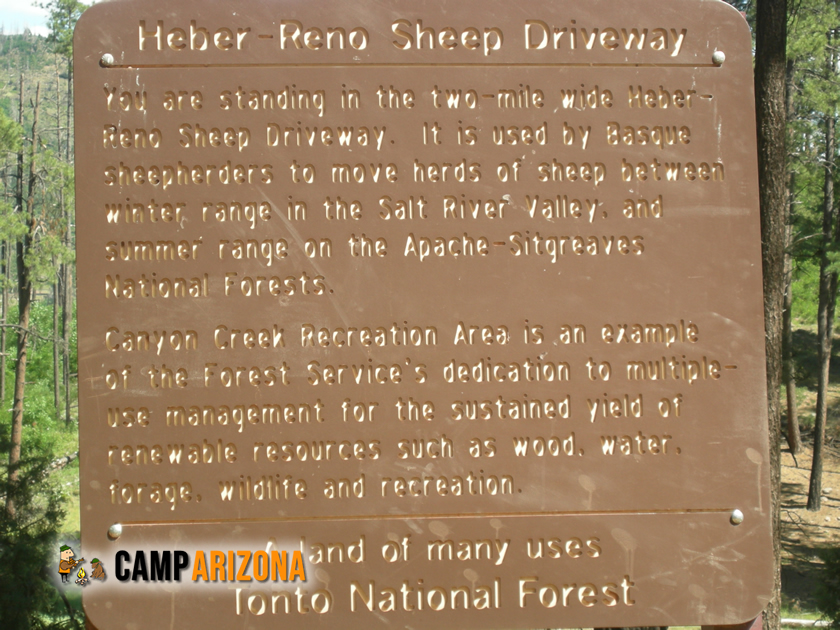 Heber-Reno Sheep Driveway
You are standing in the two-mile wide Heber-
Reno Sheep Driveway. It is used by Basque
sheepherders to move herds of sheep between
winter range in the Salt River Valley, and
summer range on the Apache-Sitgreaves
National Forests.
Canyon Creek Recreation Area is an example
of the Forest Service's dedication to multiple-
use management for the sustained yield of
renewable resources such as wood, water,
forage, wildlife and recreation.
A land of many uses
CAMPARIZONA
Tonto National Forest